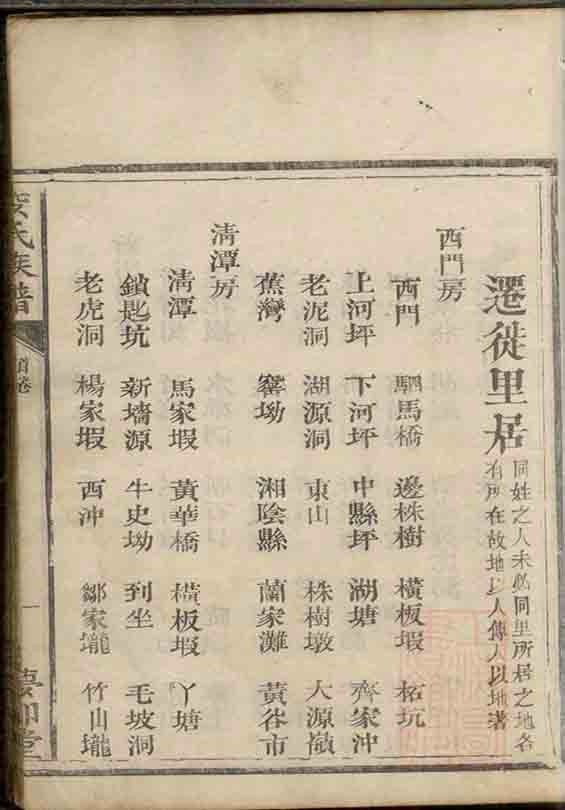 遷徙里居
同姓之人未必同里所居之地各
有所在故地以人傳人以地著
西門房
西門 駟馬橋 邊株樹 橫板塅 柘坑
上河坪 下河坪 中縣坪 湖塘 齊家沖
老泥洞 湖源洞 東山 株樹墩 大源嶺
蕉灣 窰坳 湘陰縣 蘭家灘 黃谷市
清潭房
清潭 馬家塅 黃華橋 橫板塅 丫塘
鎖匙坑 新墻源 牛史坳 到坐 毛坡洞
老虎洞 楊家塅 西沖 鄒家壠 竹山壠
氏族譜
首卷
一